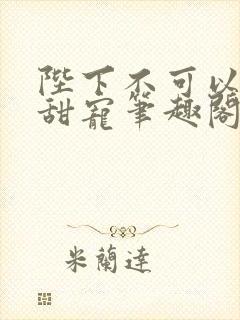 陛下不可以
甜寵筆趣閣
米蘭達